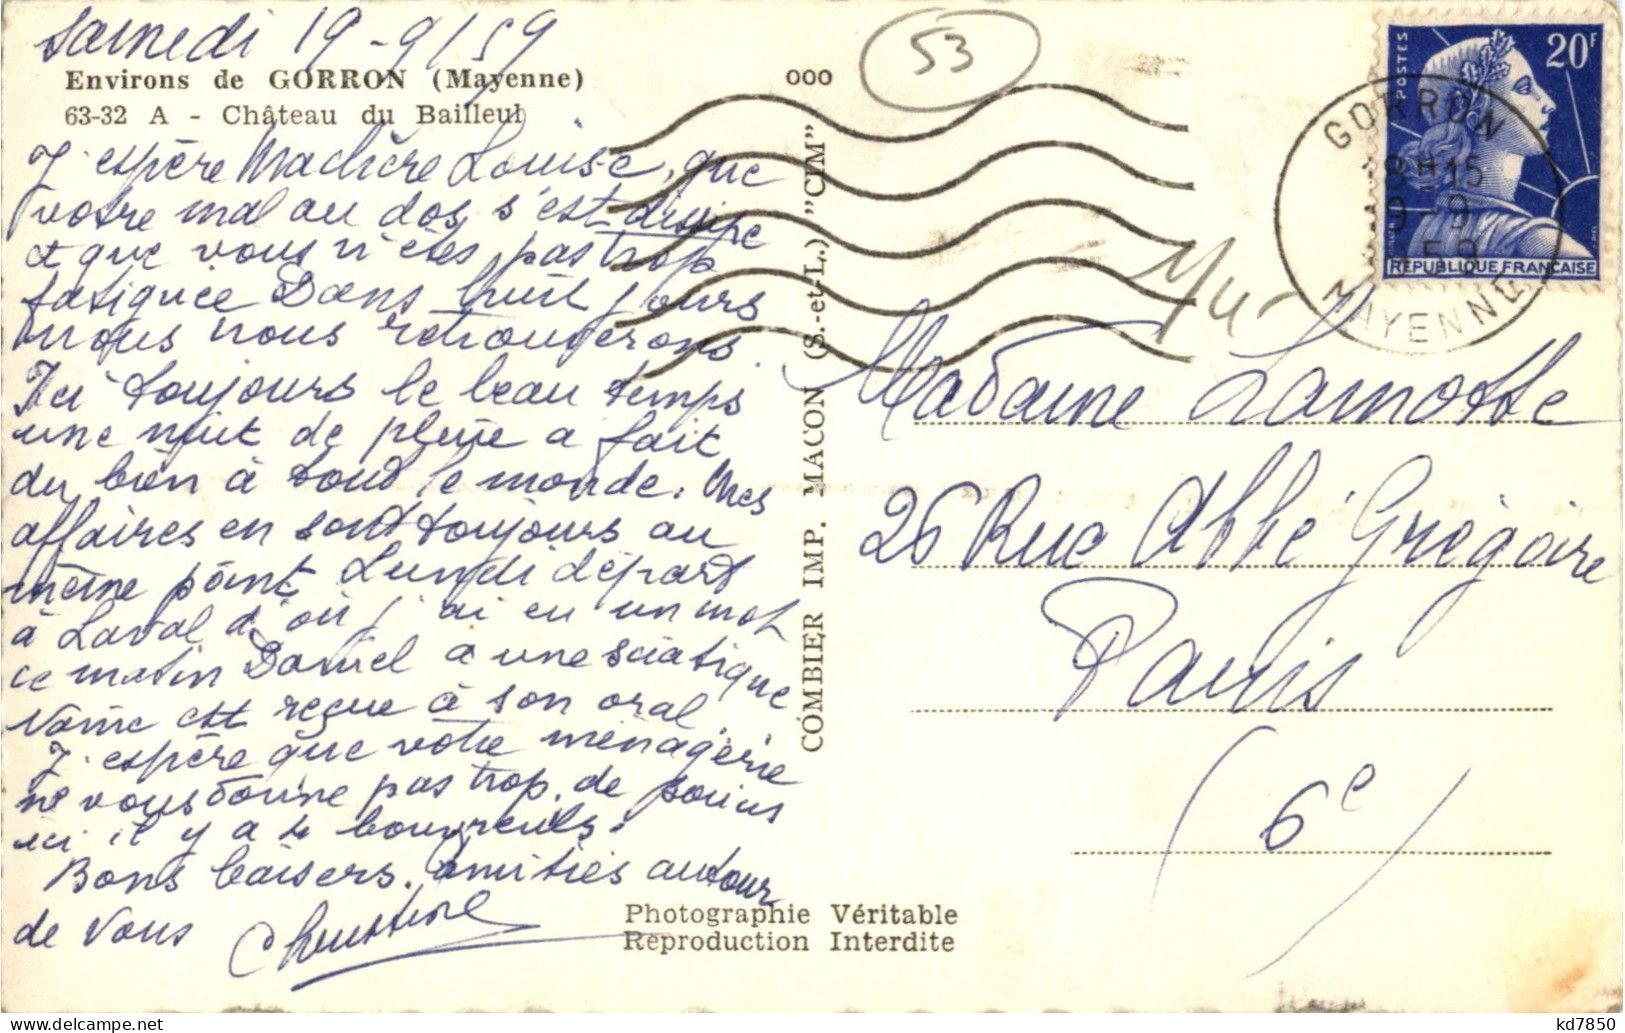 Samedi 19-9/59
Environs de GORRON (Mayenne)
63-32 A - Château du Bailleul
J'espère Madière Louise, que
votre mal au dos s'est dissipé
et que vous n'êtes pas trop
fatiguée Dans huit jours
nous nous retrouverons.
Ici toujours le beau temps
une nuit de pluie a fait
du bien à tout le monde. Mes
affaires en sont toujours au
même point Lundi départ
à Laval d'où j'ai eu un mot
ce matin Daniel a une sciatique
est reçue à son oral
J'espère que votre ménagerie
ne vous donne pas trop de soucis
ici il y a 4 bouvreuils.
Bons baisers. Amitiés autour
de vous
000
53
COMBIER IMP. MACON (S.-et-L.) "CIM"
POSTES
20F
REPUBLIQUE FRANCAISE
GORRON
H 15
19-9
59
MAYENNE
Madame Lamotte
26 Rue Abbé Grégoire
Paris
(6e)
Photographie Véritable
Reproduction Interdite
kd7850